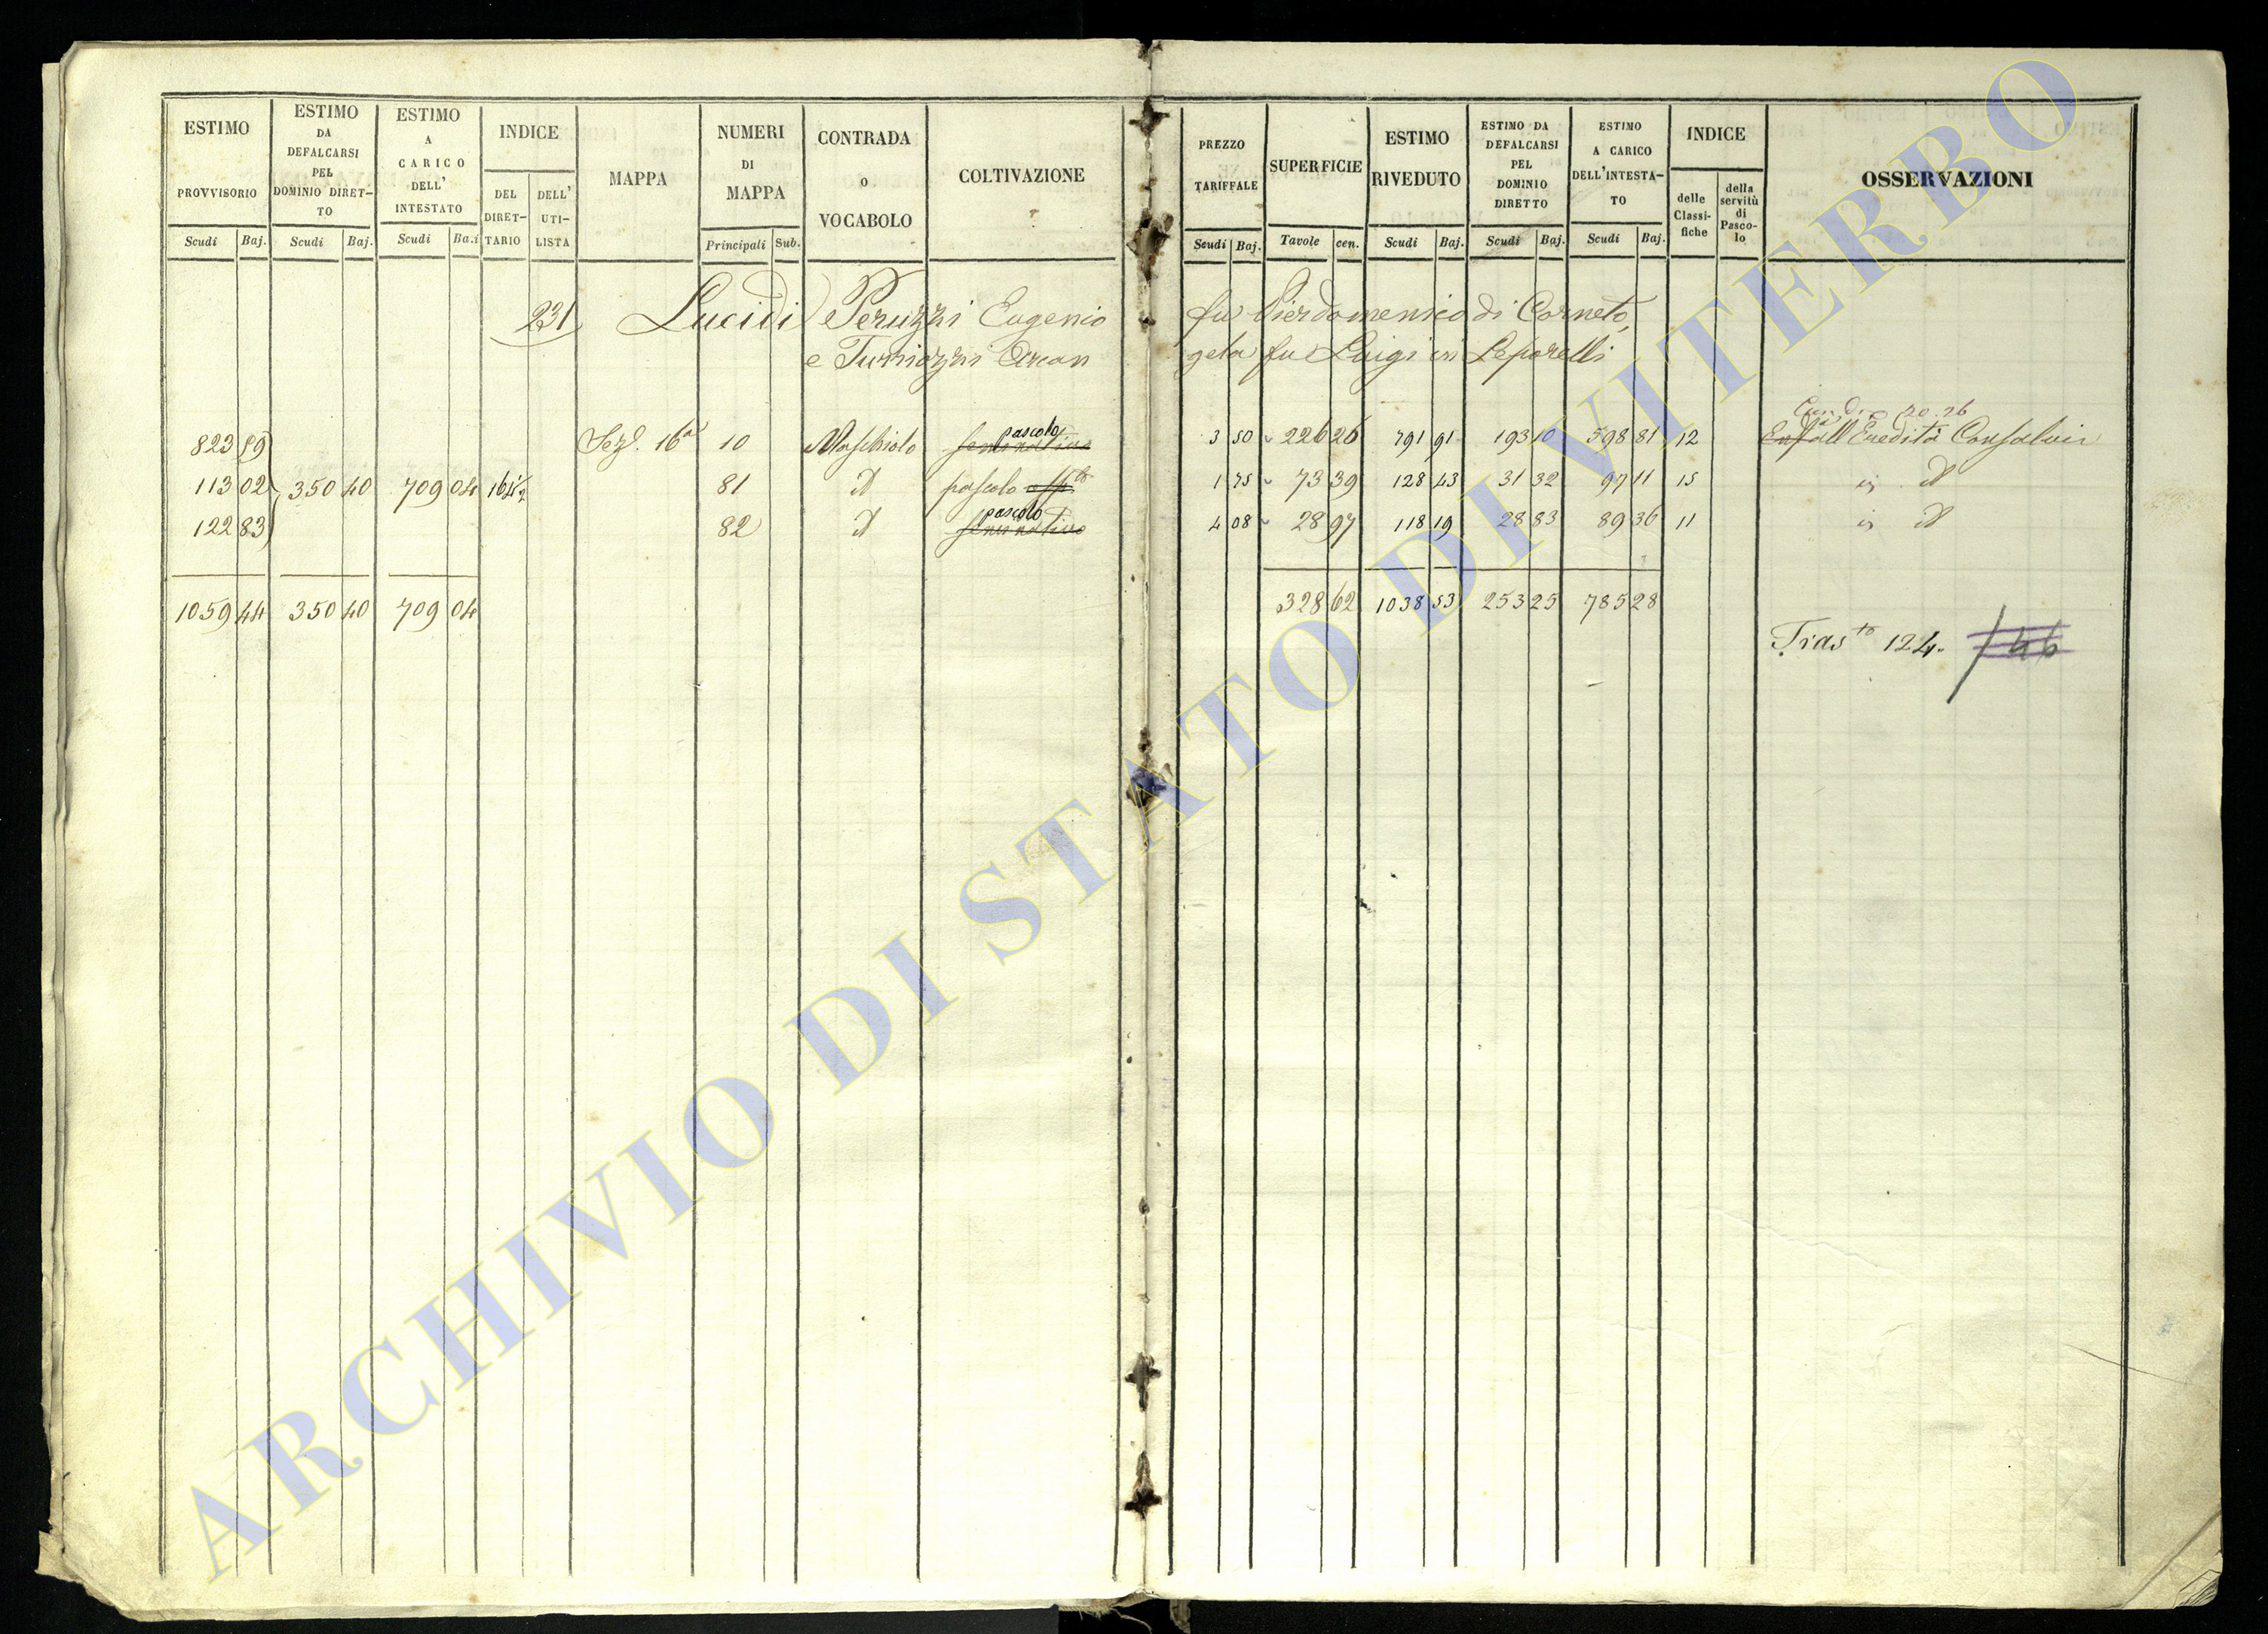 ESTIMO PROVVISORIO Scudi Baj.
ESTIMO DA DEFALCARSI PEL DOMINIO DIRET-TO Scudi Baj.
ESTIMO A CARICO DELL' INTESTATO Scudi Ba.i
INDICE DEL DIRET-TARIO DELL' UTI-LISTA
MAPPA
NUMERI DI MAPPA Principali Sub.
CONTRADA O VOCABOLO
COLTIVAZIONE
PREZZO TARIFFALE Scudi Baj.
SUPERFICIE Tavole cen.
ESTIMO RIVEDUTO Scudi Baj.
ESTIMO DA DEFALCARSI PEL DOMINIO DIRETTO Scudi Baj.
ESTIMO A CARICO DELL'INTESTA-TO Scudi Baj.
INDICE delle Classi-fiche della servitù di Pasco-lo
OSSERVAZIONI
231 Lucidi Peruzzi Eugenio fu Pierdomenico di Corneto,
e Turriozzi Arcan gela fu Luigi in Leporelli
pascolo 20.26
823 59 Sez. 16a 10 seminativo 3 50 226 26 791 91 193 10 598 81 12 all Eredità Consalvi
113 02 350 40 709 04 164½ 81 d pascolo 1 75 73 39 128 43 31 32 97 11 15 d
pascolo
122 83 82 d seminativo 4 08 28 97 118 19 28 83 89 36 11 d
1059 44 350 40 709 04 328 62 1038 53 253 25 785 28
Trasto 124.
ARCHIVIO DI STATO DI VITERBO